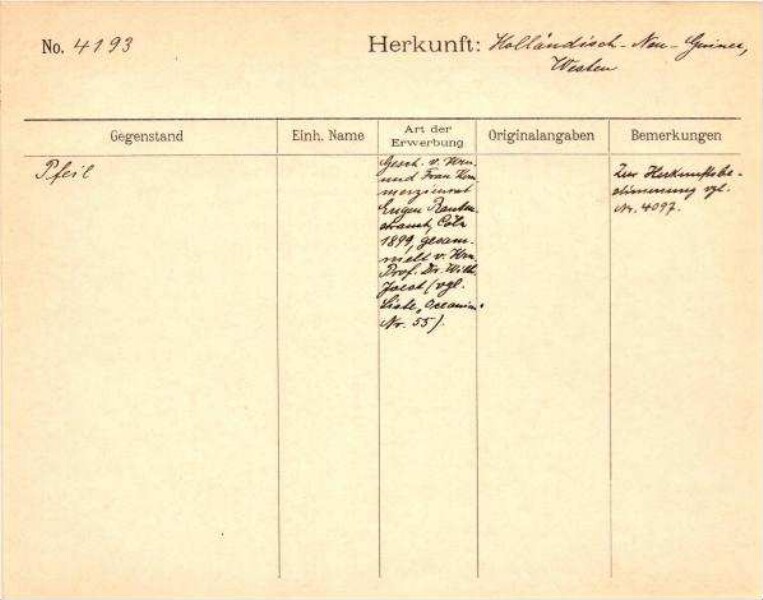 No. 4193
Herkunft: Holländisch-Neu-Guinea,
Westen
Gegenstand
Einh. Name
Art der
Erwerbung
Originalangaben
Bemerkungen
Pfeil
Gesch. v. Hrn.
und Frau Kom-
merzienrat
Eugen Rauten-
strauch, Cöln
1899, gesam-
melt v. Hrn.
Prof. Dr. Wilh.
Joest (vgl.
Liste „Oceanien“
Nr. 55).
Zur Herkunftsbe-
stimmung vgl.
Nr. 4097.